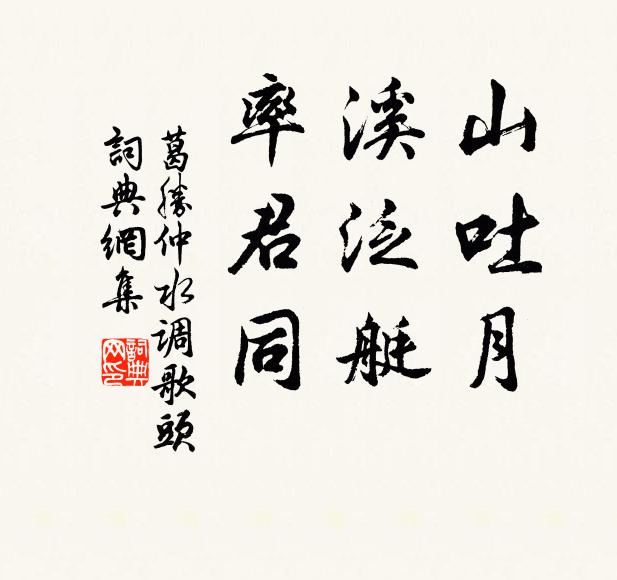 山吐月
溪泛艇
率君同
葛勝仲水调歌頭
詞典網集
詞典网印